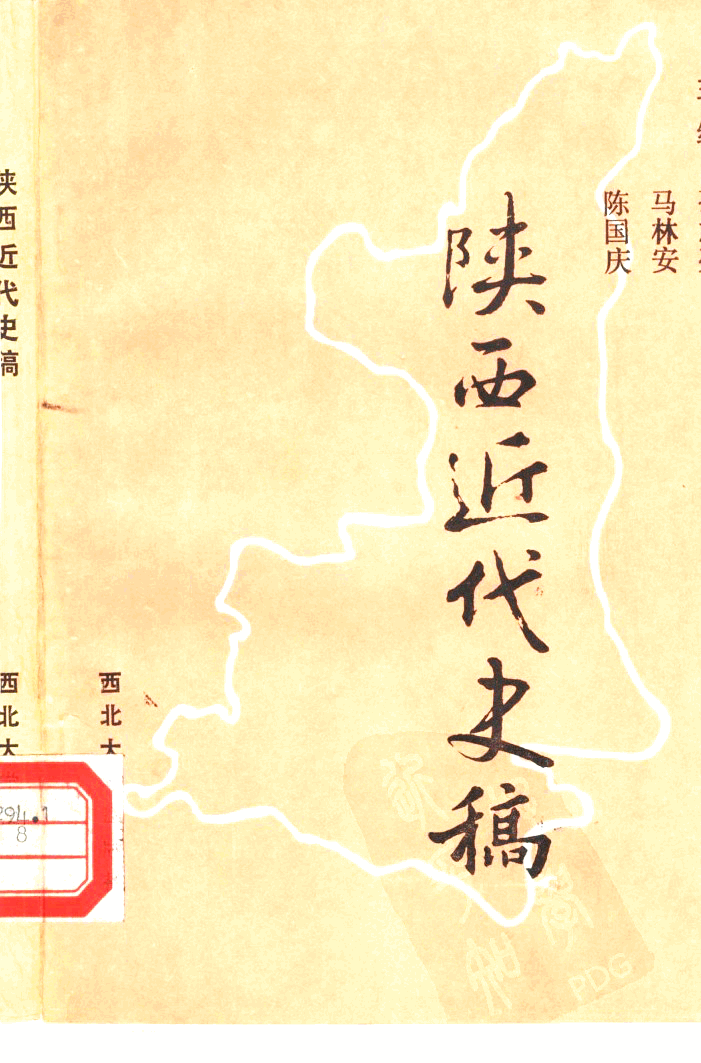 陕西近代史稿
马林安
陈国庆
陕西近代史稿
西北大
西北大
294.1
8
PDG